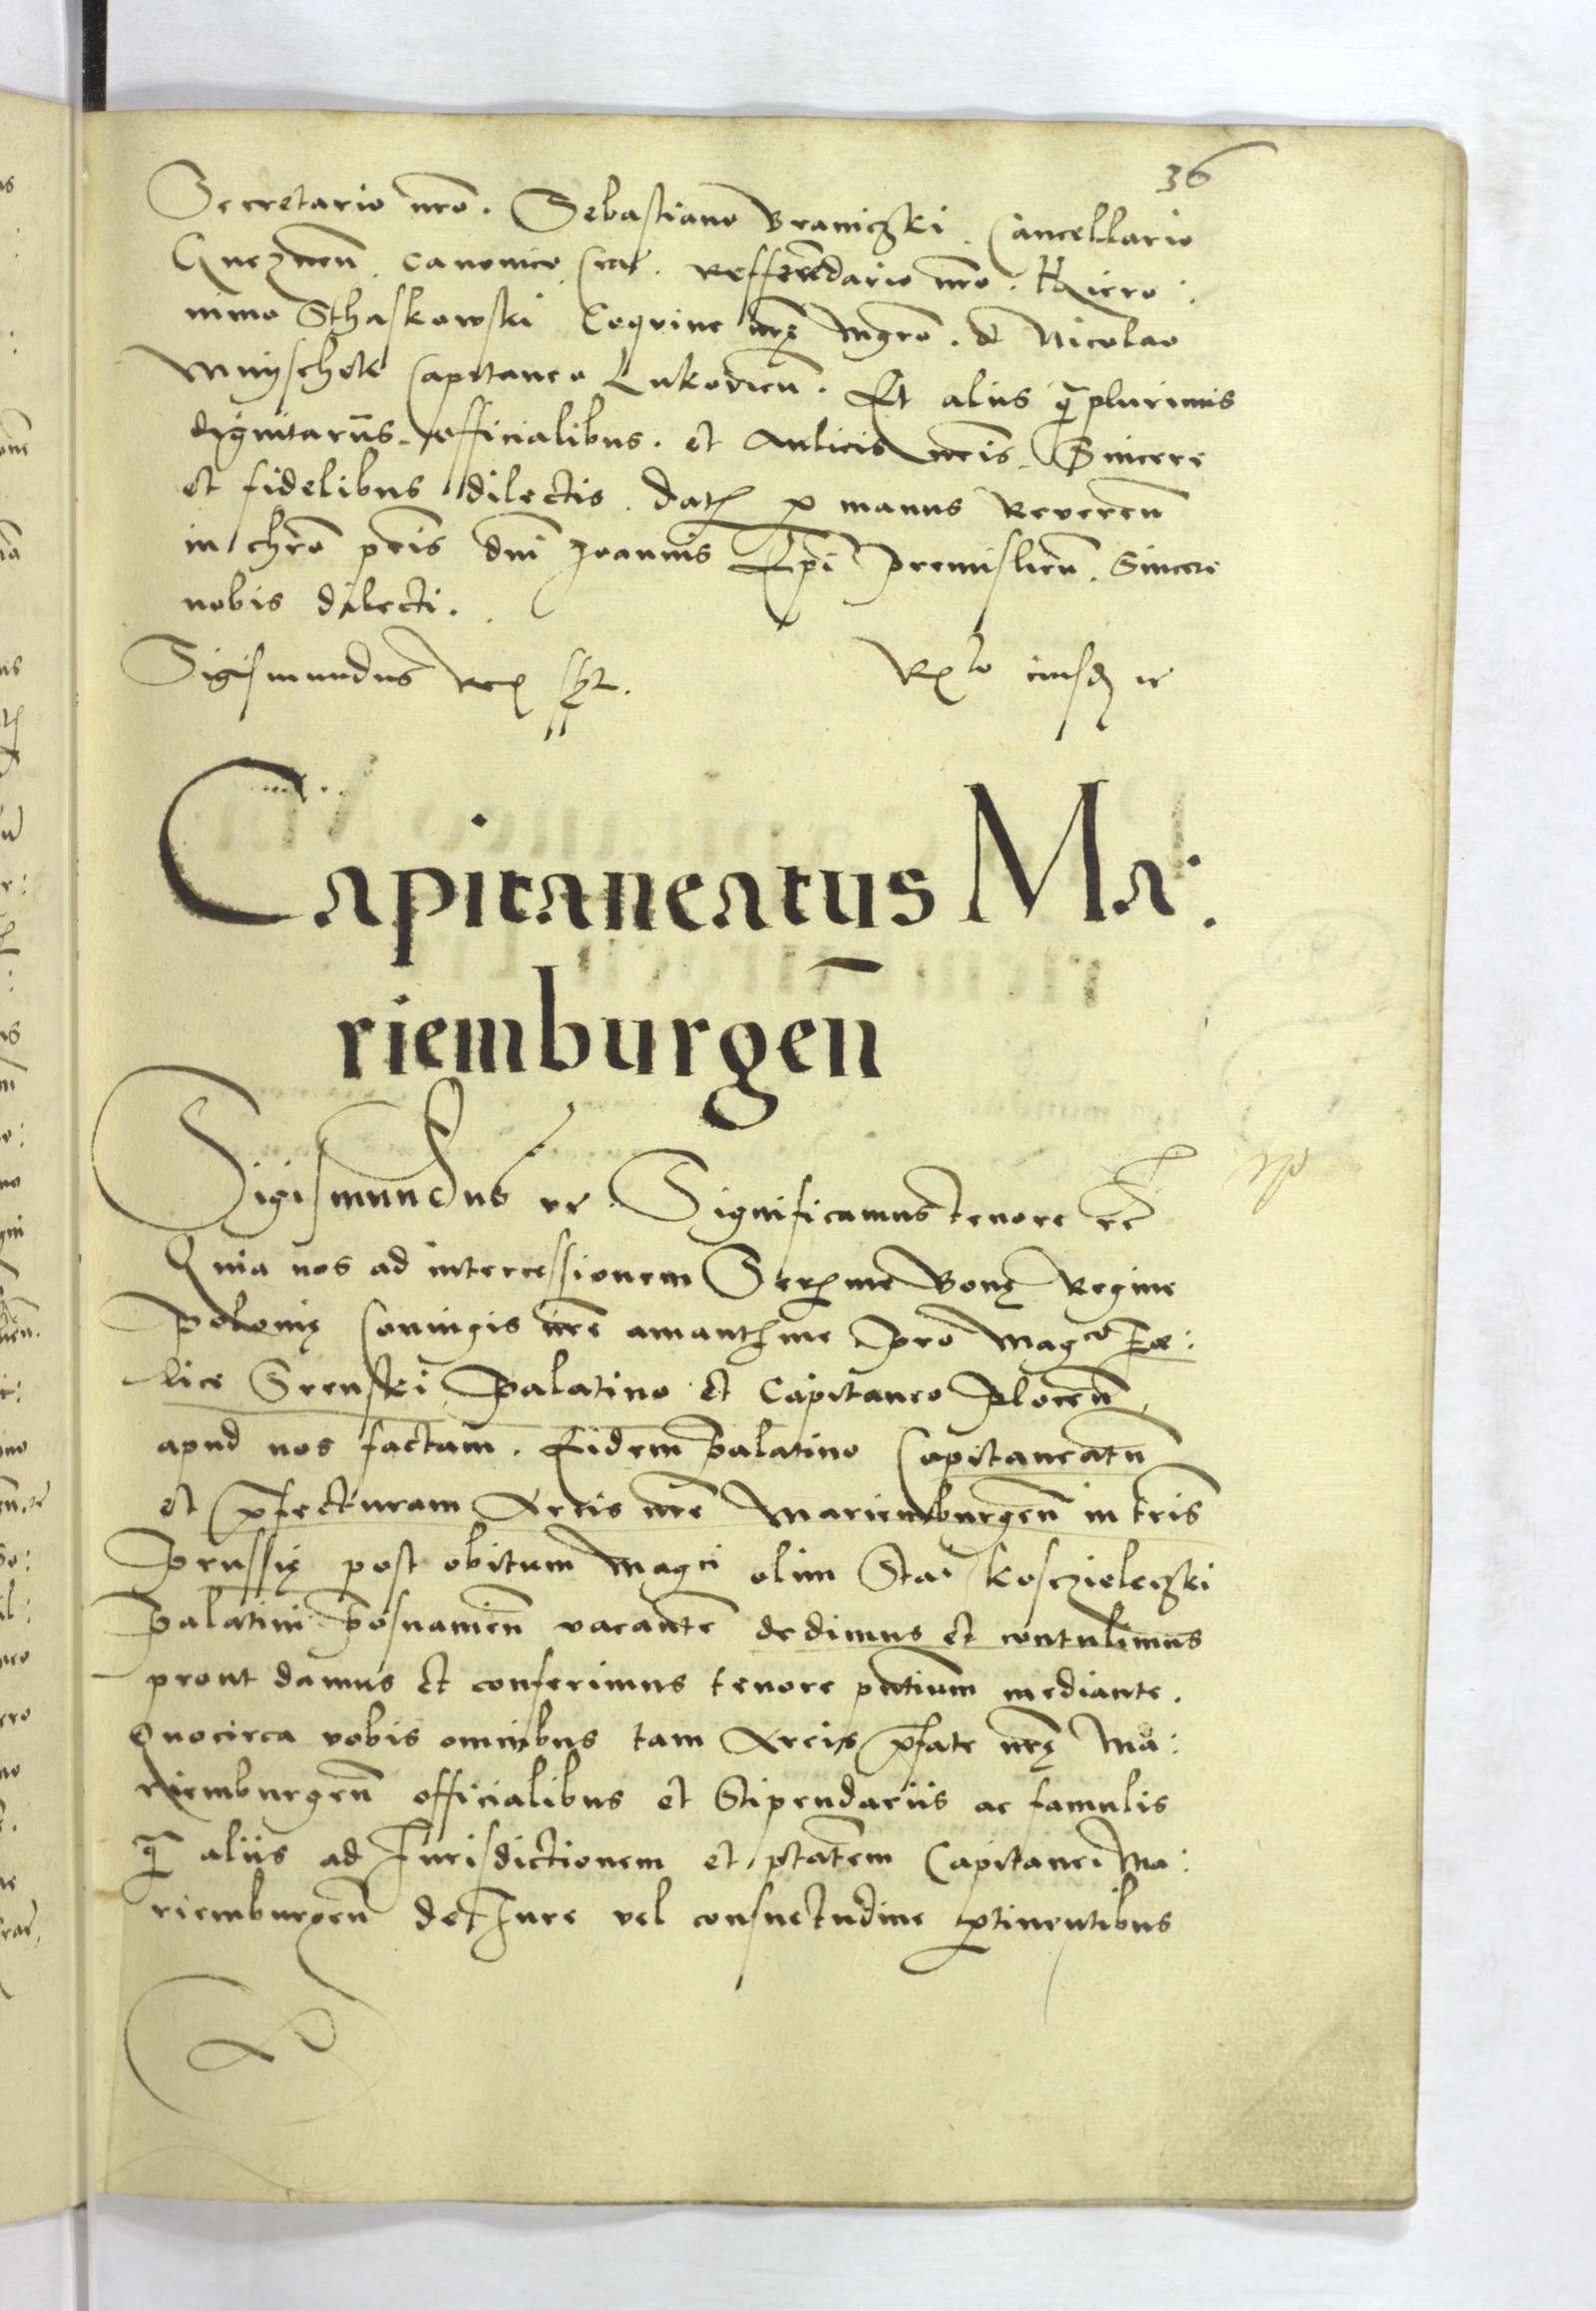 36
Secretario nro. Sebastiano Braniczki. Cancellario
Gneznen̄. Canonico Crac. Refferendario nro. Hiero:
nimo Sthaskowski Coquine nrę Mgro. et Nicolao
Mnyschek Capitaneo Lukovien̄. Et aliis q̄plurimis
dignitariis officialibus. et Aulicis nris. Sincere
et fidelibus dilectis. Dat. p manus Reveren̄
in chro pris dni Joannis Epi Premislien̄. Sincere
nobis dilecti.
Sigismundus Rex sst.
Rlo eiusd. ꝛc
Capitaneatus Ma:
riemburgen̄
Sigismundus ꝛc. Significamus tenore ꝛc
Quia nos ad intercessionem Serme Bonę Regine
Polonię Coniugis nre amantme pro Magco Fœ:
lice Srenski Palatino et Capitaneo Plocen̄
apud nos factam. Eidem Palatino Capitaneatū
et p̄fecturam Arcis nre Mariemburgen̄ in tris
Prussię post obitum Magci olim Stai Kosczieleczki
Palatini Posnanien̄ vacantē dedimus et contulimus
prout damus et conferimus tenore pntium mediante.
Quocirca vobis omnibus tam Arcis p̄fate nrę Ma:
riemburgen̄ officialibus et Stipendariis ac famulis
q̄ aliis ad Jurisdictionem et ptatem Capitanei Ma:
riemburgen̄ de Jure vel consuetudine ptinentibus